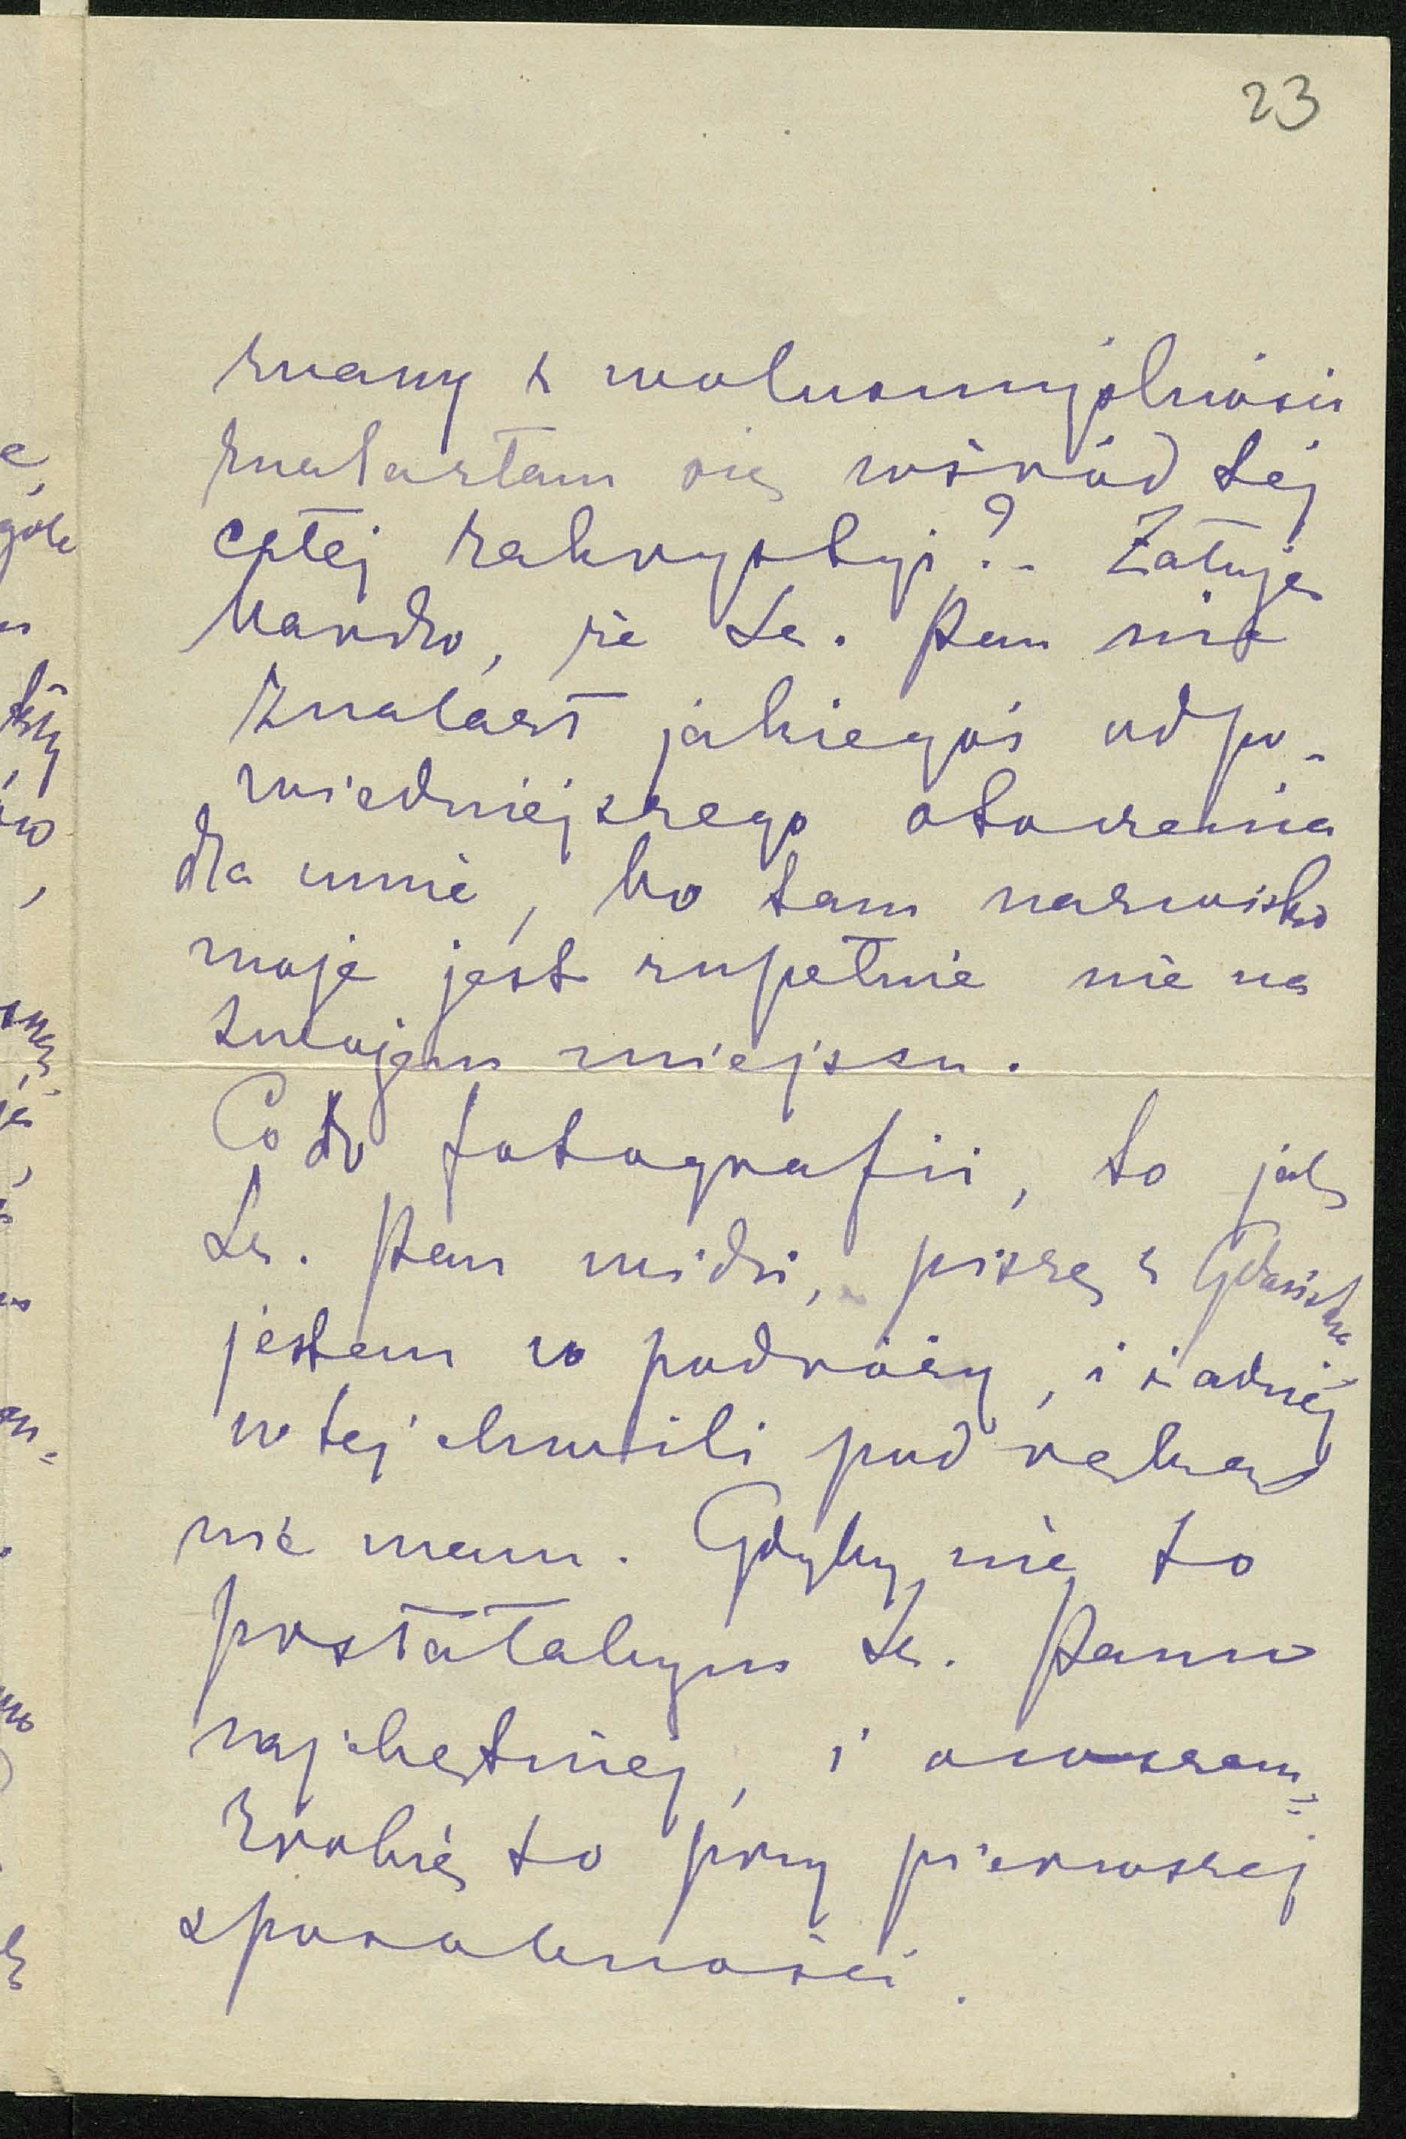 23
znany z wolnomyślności
znalazłam się wśród tej
całej zakrystyi?.. Żałuję
bardzo, że Sz. Pan nie
znalazł jakiegoś odpo-
wiedniejszego otoczenia
dla mnie, bo tam nazwisko
moje jest zupełnie nie na
swojem miejscu.
Co do fotografii, to jak
Sz. Pan widzi, piszę z Gdańska
jestem w podróży, i żadnej
w tej chwili pod ręką
nie mam. Gdyby nie to
posłałabym Sz. Panu
najchętniej, i owszem =
zrobię to przy pierwszej
sposobności.